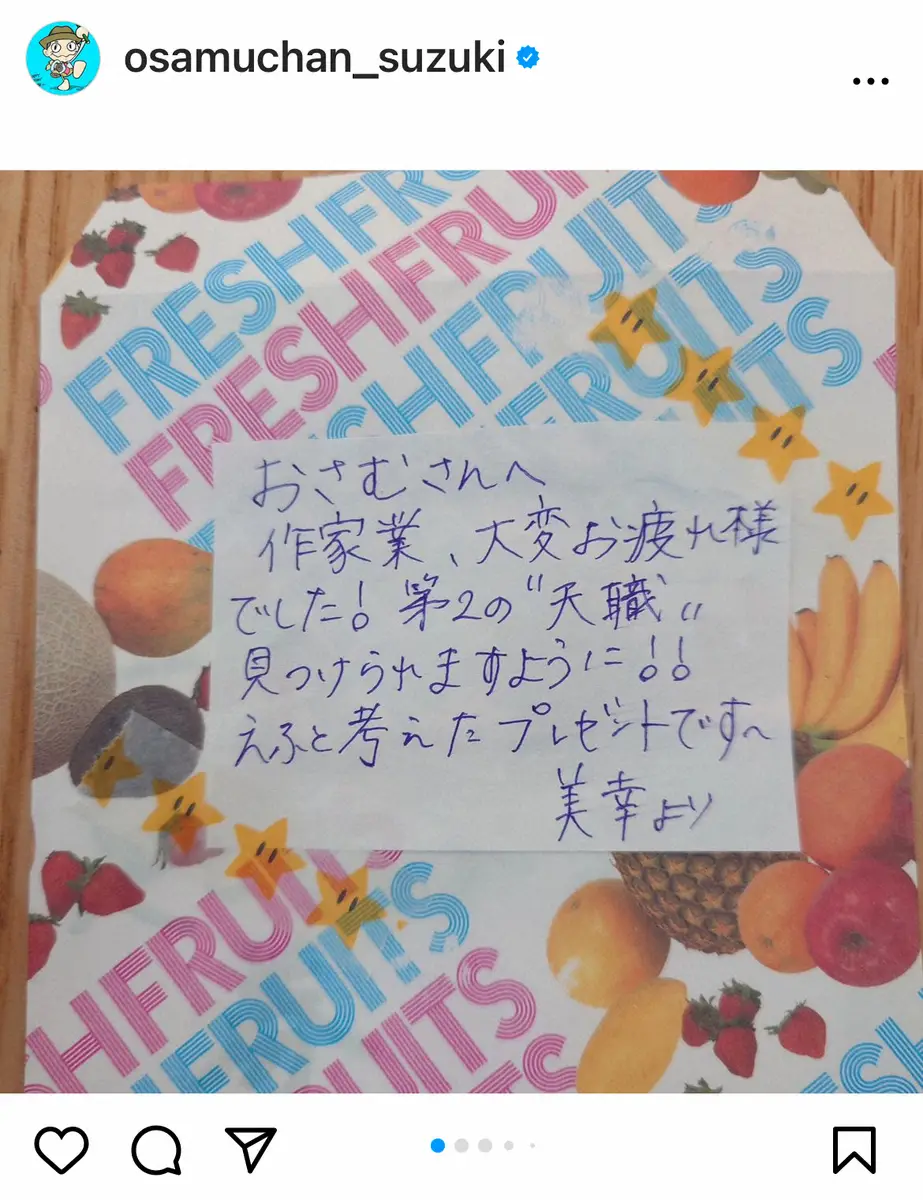 osamuchan_suzuki
FRESH FRU
FRESH FRUI
SHFRUITS
FRUITS
ITS
おさむさんへ
作家業、大変お疲れ様
でした！第2の〝天職〟
見つけられますように！！
えふと考えたプレゼントです〜
美幸より
SHFRUITS
HFRUITS
RUITS